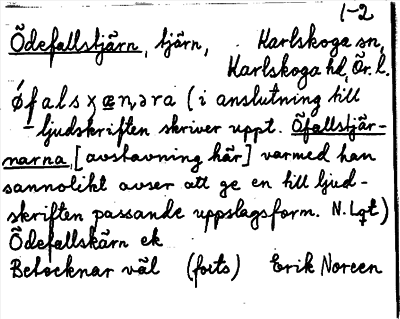 1-2
Ödefallstjärn, tjärn, Karlskoga sn,
Karlskoga hd, Ör. l.
ǿfalsχæn,əra (i anslutning till
ljudskriften skriver uppt. Öfallstjär-
narna [avstavning här] varmed han
sannolikt avser att ge en till ljud-
skriften passande uppslagsform. N. Lgt)
Ödefallskärn ek
Betecknar väl (forts) Erik Noreen